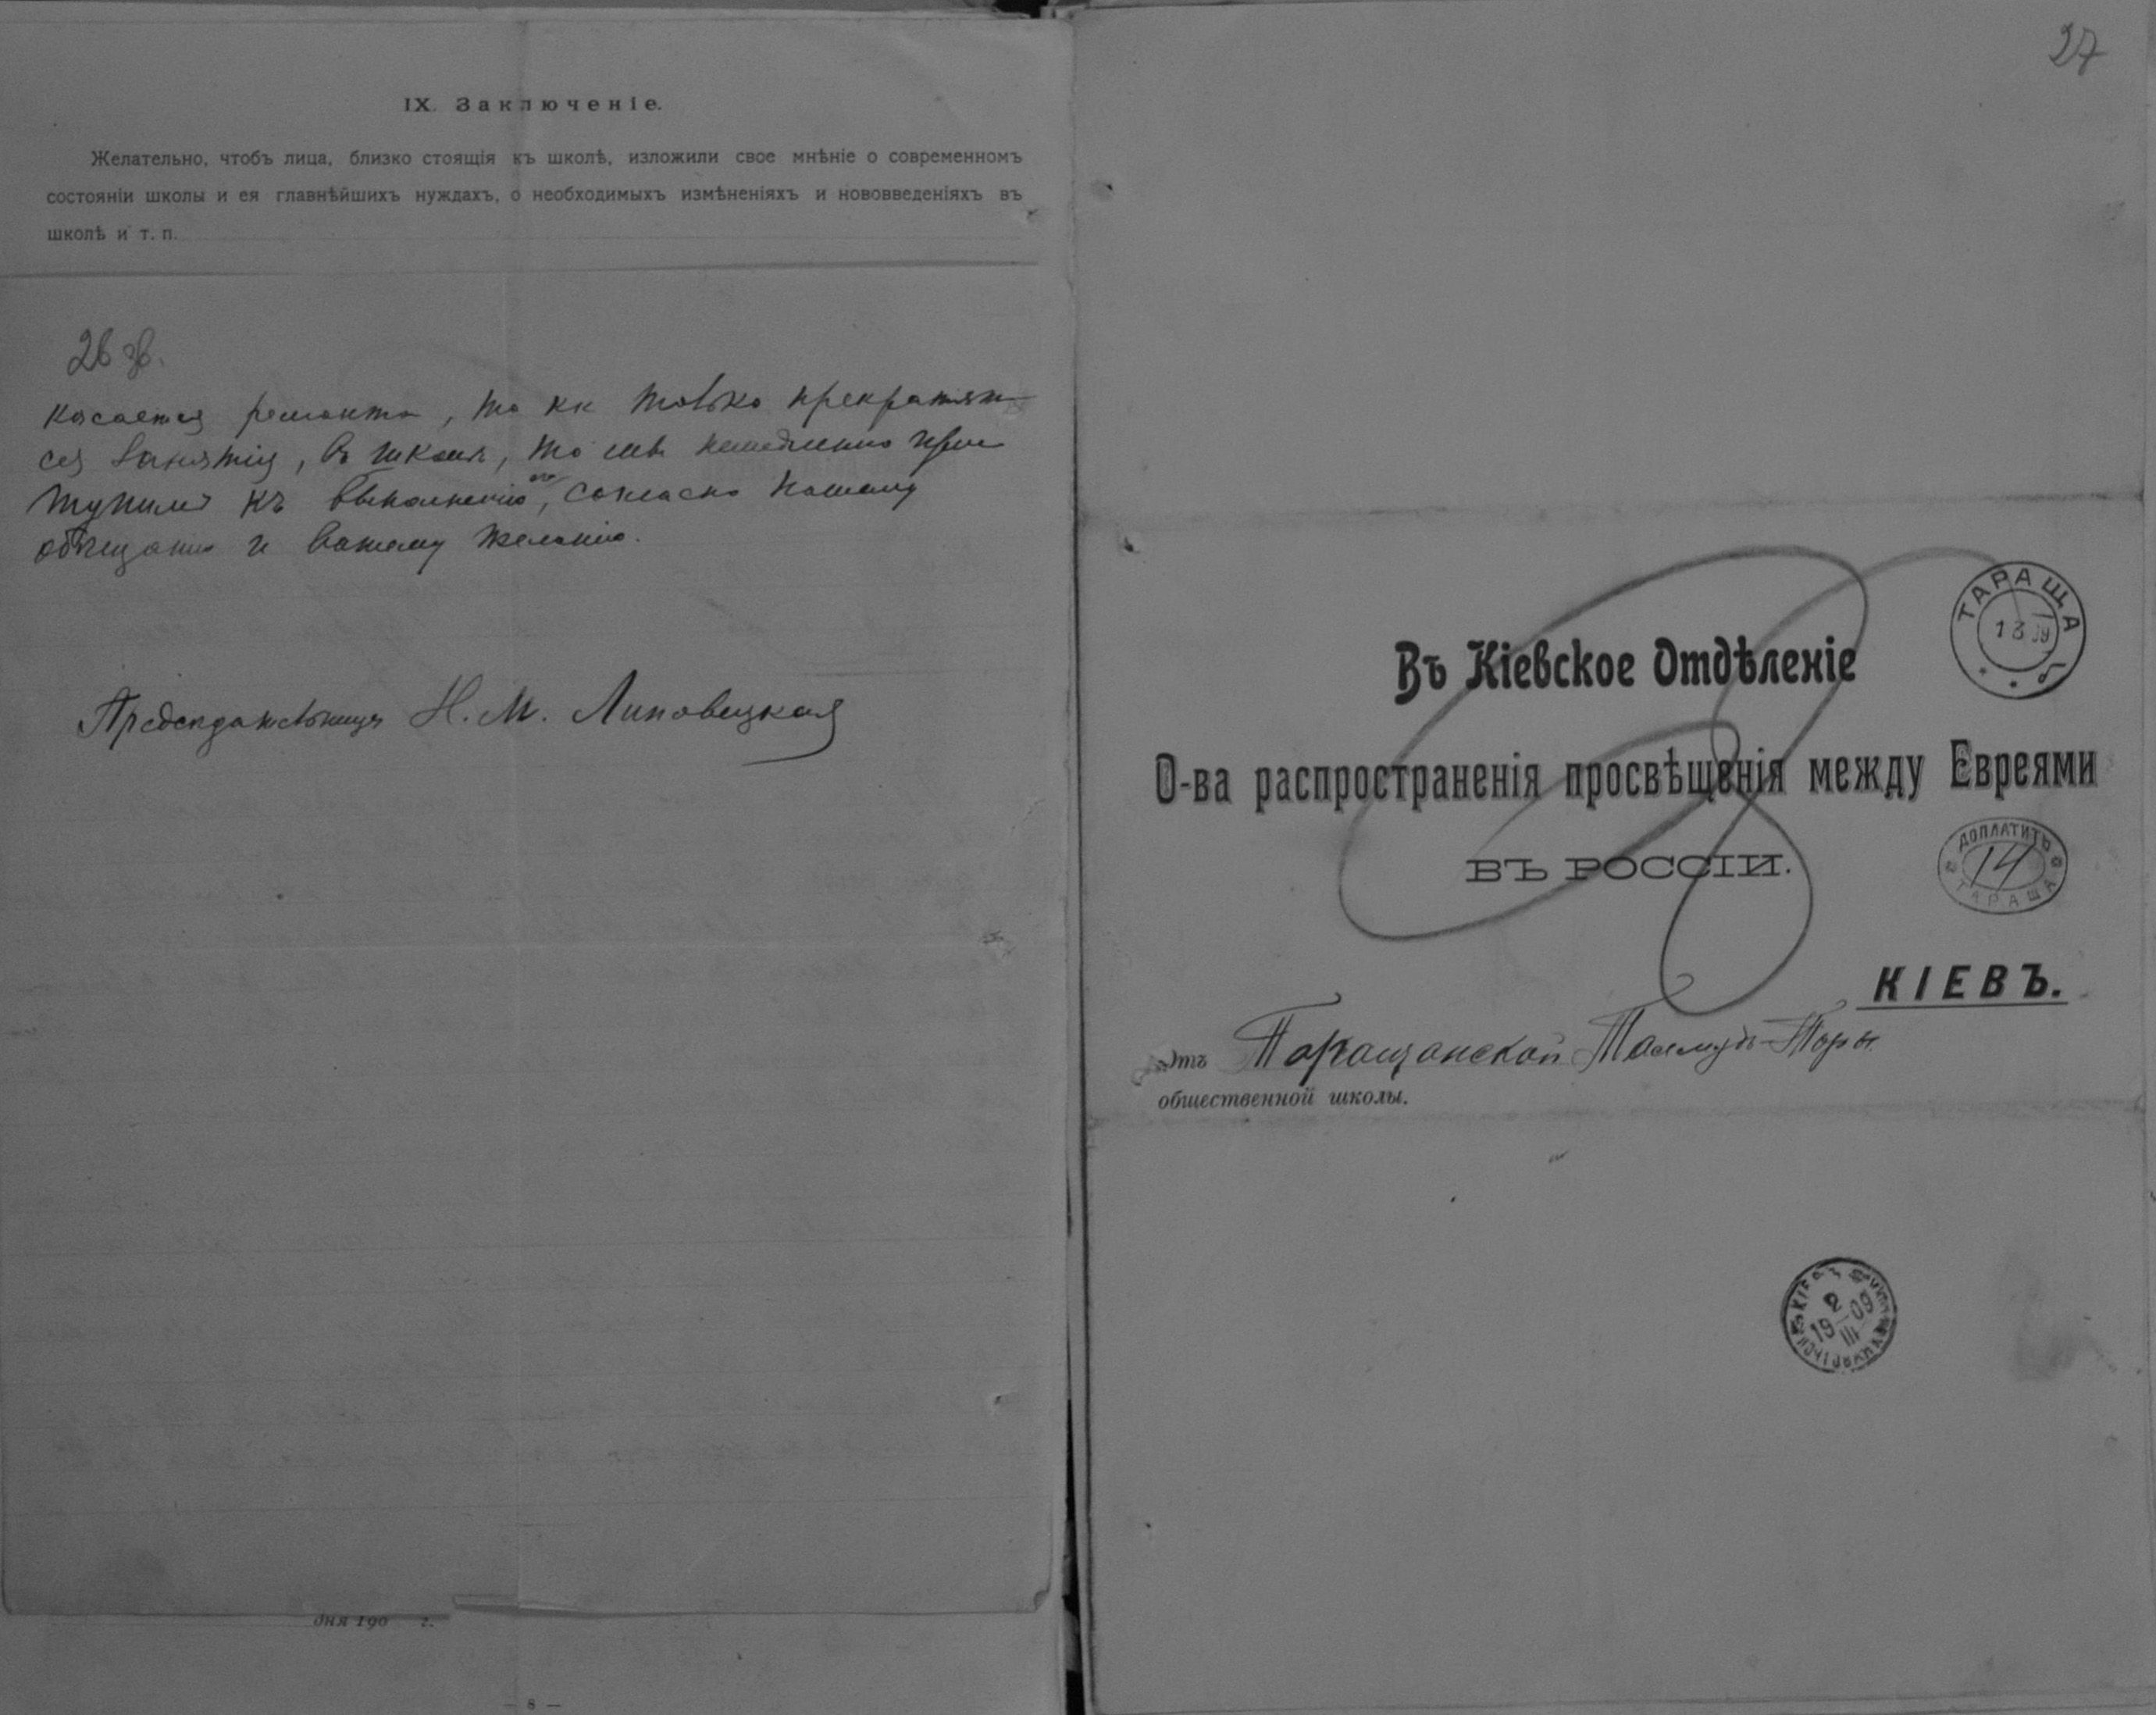 IX. Заключеніе.
Желательно, чтобъ лица, близко стоящія къ школѣ, изложили свое мнѣніе о современномъ
состояніи школы и ея главнѣйшихъ нуждахъ, о необходимыхъ измѣненіяхъ и нововведеніяхъ въ
школѣ и т. п.
26 зв.
касается ремонта, то кк только прекратят
ся занятія, въ школѣ, то мы немедленно прис
тупимъ къ выполненію его, согласно нашему
обѣщанію и вашему желанію.
Предсѣдательница Н. М. Липовецкая
дня 190 г.
— 8 —
27
Въ Кіевское Отдѣленіе
О-ва распространенія просвѣщенія между Евреями
ВЪ РОССІИ.
КІЕВЪ.
Отъ Таращанской Талмудъ-Торы
общественной школы.
ТАРАЩА
ДОПЛАТИТЬ
14
ТАРАЩА
КІЕВЪ
2
19 III 09